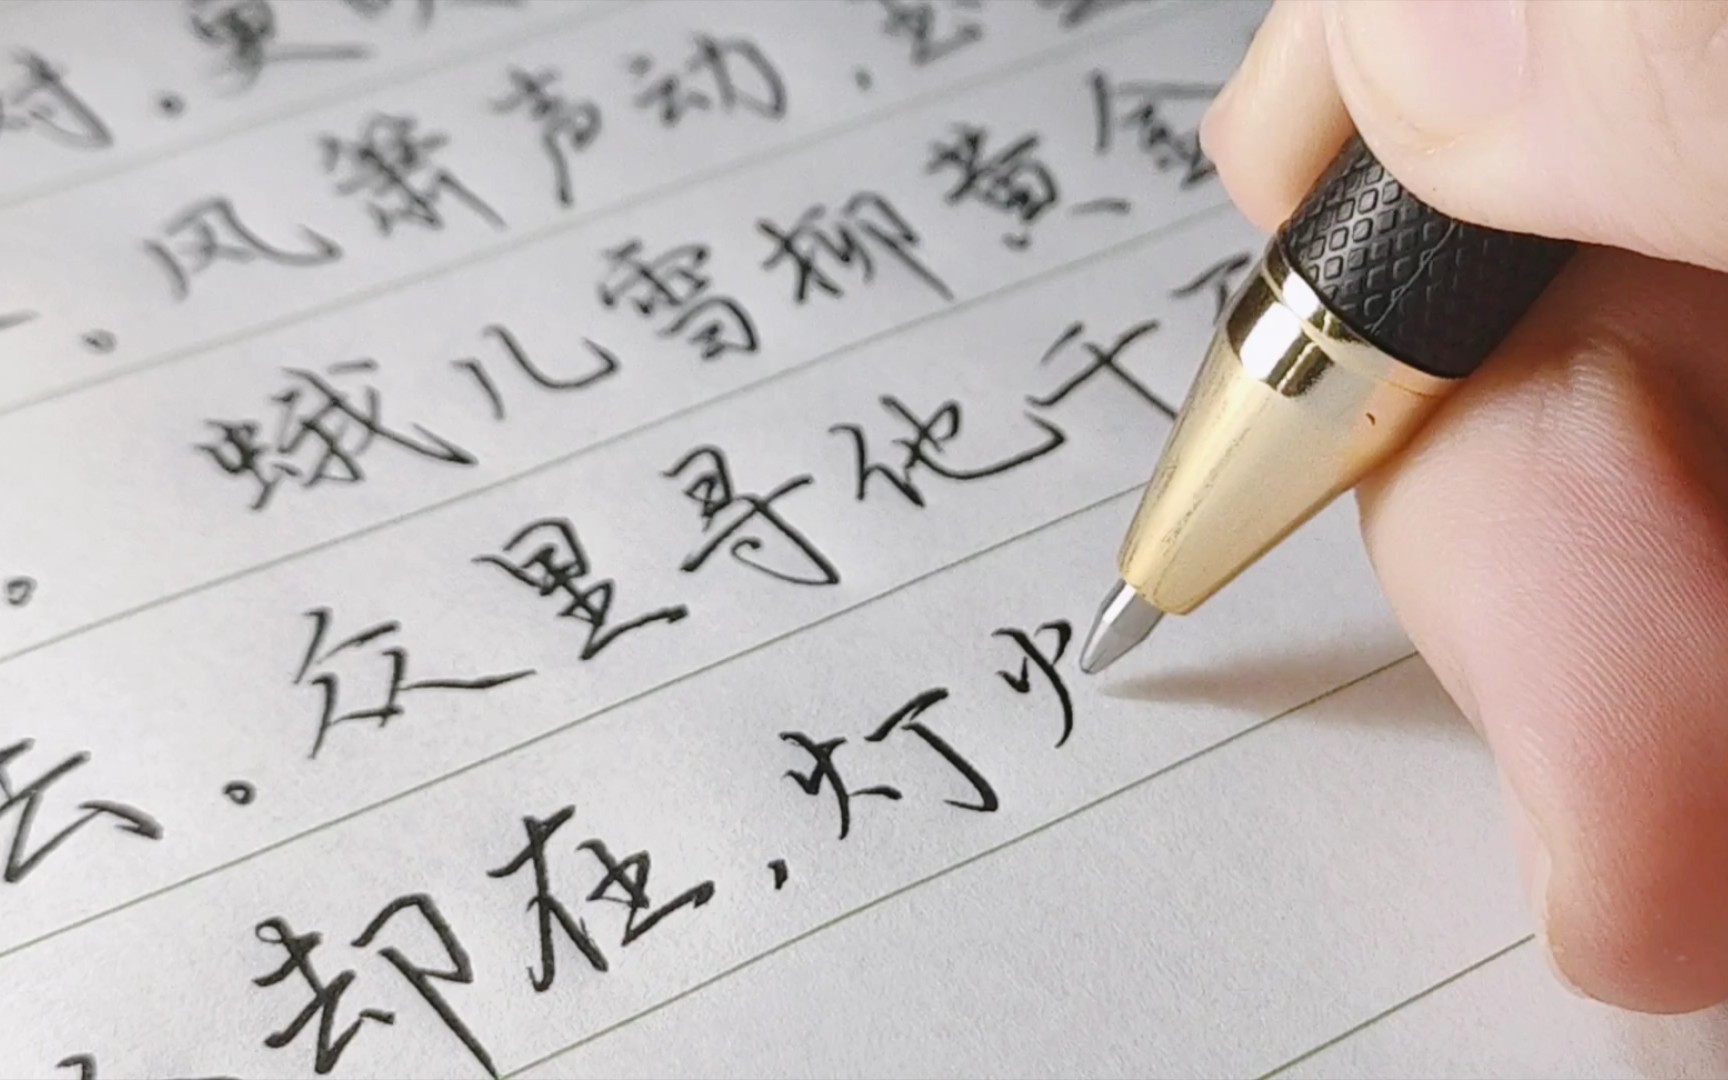 。风箫声动，玉
蛾儿雪柳黄金
去。众里寻他千
却在，灯火